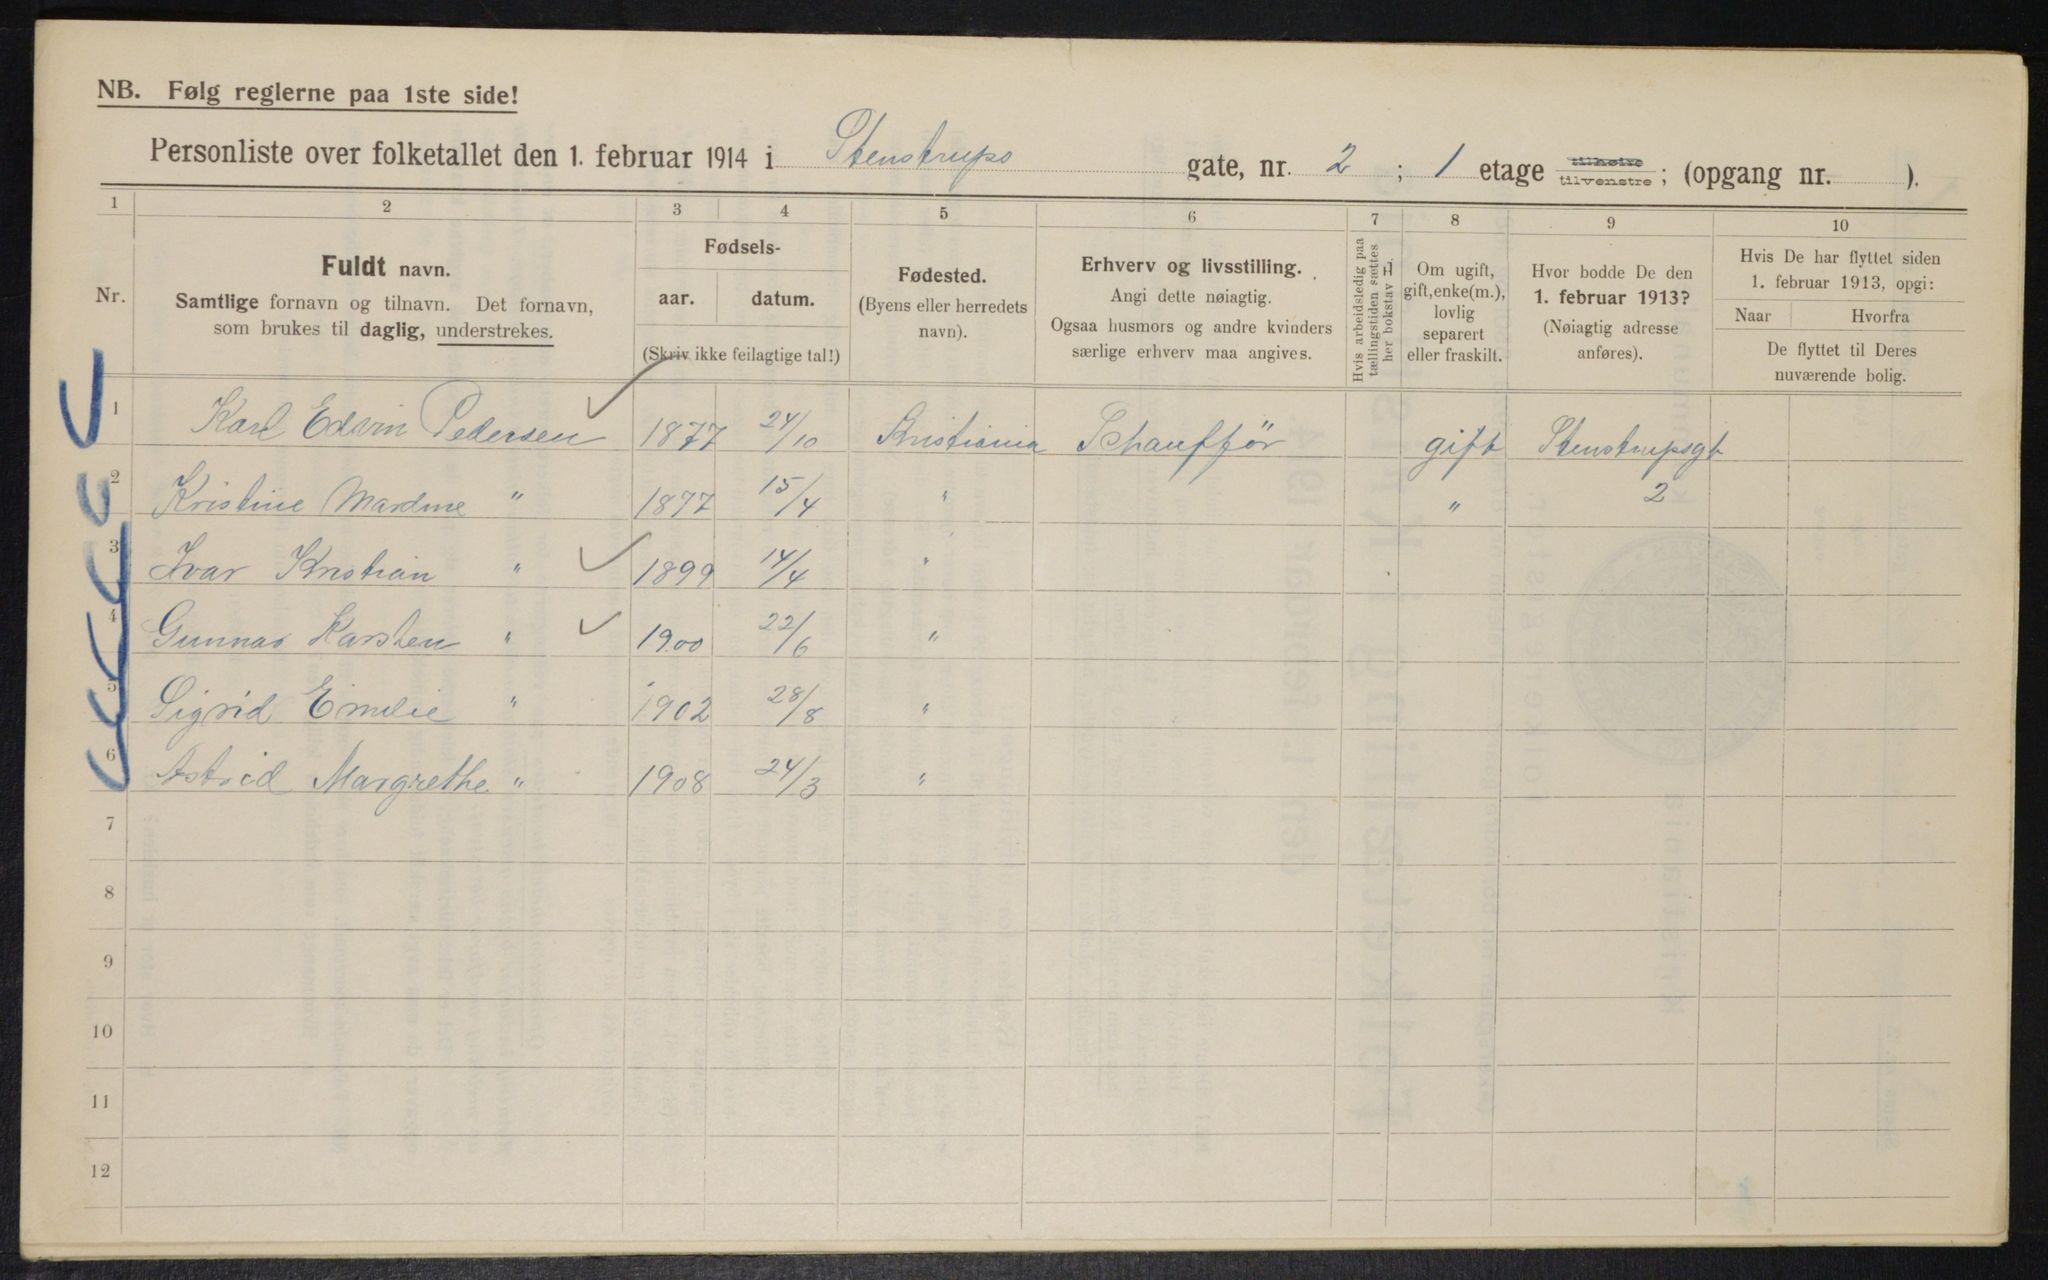 NB. Følg reglerne paa 1ste side!
Personliste over folketallet den 1. februar 1914 i Stenstrups gate, nr. 2 ; 1 etage tilhøire tilvenstre ; (opgang nr. ).
1 2 3 4 5 6 7 8 9 10
Nr.
Fuldt navn.
Samtlige fornavn og tilnavn. Det fornavn,
som brukes til daglig, understrekes.
Fødsels-
aar. datum.
(Skriv ikke feilagtige tal!)
Fødested.
(Byens eller herredets
navn).
Erhverv og livsstilling.
Angi dette nøiagtig.
Ogsaa husmors og andre kvinders
særlige erhverv maa angives.
Hvis arbeidsledig paa
tællingstiden sættes
her bokstav H.
Om ugift,
gift, enke(m.),
lovlig
separert
eller fraskilt.
Hvor bodde De den
1. februar 1913?
(Nøiagtig adresse
anføres).
Hvis De har flyttet siden
1. februar 1913, opgi:
Naar Hvorfra
De flyttet til Deres
nuværende bolig.
1 Karl Edvin Pedersen 1877 24/10 Kristiania Schauffør gift Stenstrupsgt
2 Kristine " 1877 15/4 " " 2
3 Ivar Kristian " 1899 14/4 "
4 Gunnar Karsten " 1900 22/6 "
5 Sigrid Emilie " 1902 28/8 "
6 Astrid Margrethe " 1908 24/3 "
7
8
9
10
11
12